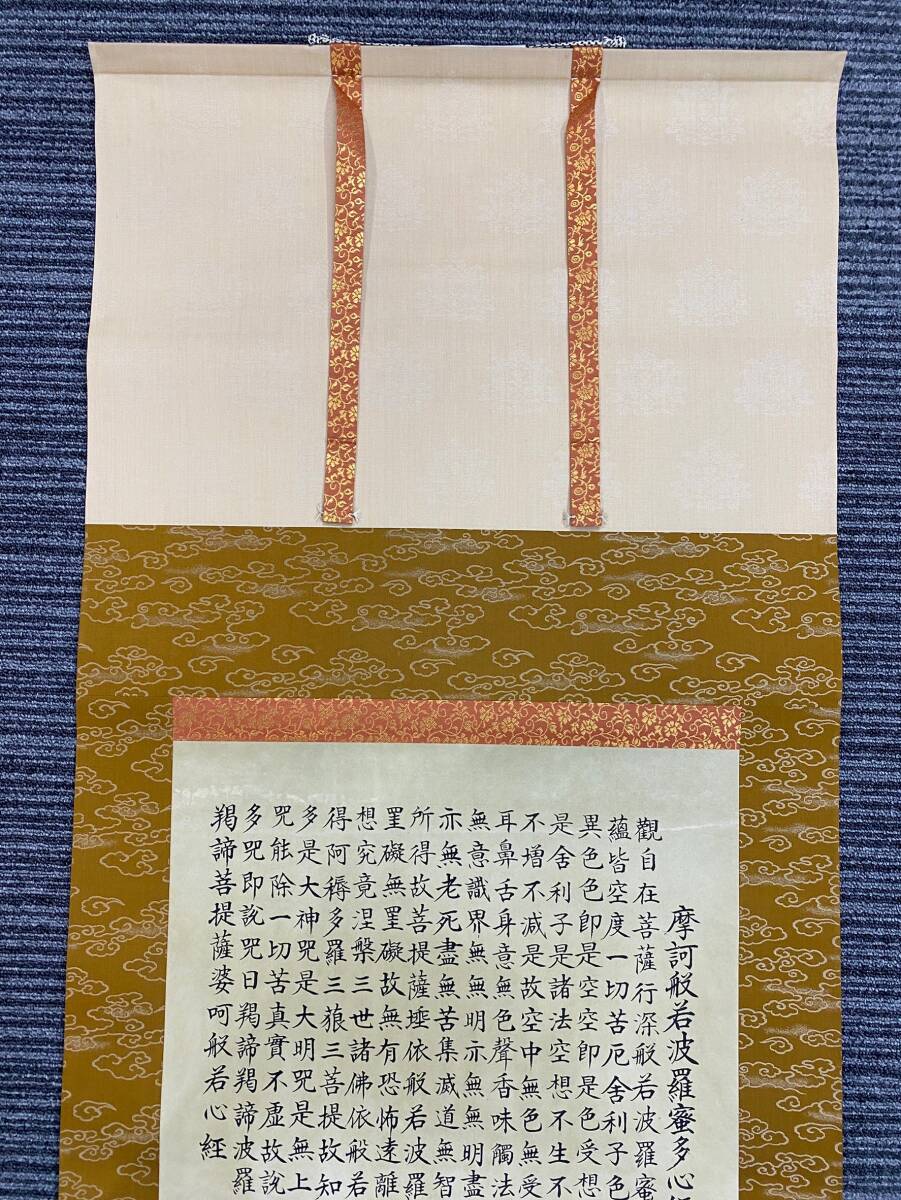 摩訶般若波羅蜜多心
觀自在菩薩行深般若波羅蜜
蘊皆空度一切苦厄舍利子色
異色色即是空空即是色受想
是舍利子是諸法空想不生不
不增不減是故空中無色無受
耳鼻舌身意無色聲香味觸法
無意識界無無明亦無無明盡
亦無老死盡無苦集滅道無智
所得故菩提薩埵依般若波羅
罣礙無罣礙故無有恐怖遠離
想究竟涅槃三世諸佛依般若
得阿耨多羅三狼三菩提故知
多是大神咒是大明咒是無上
咒能除一切苦真實不虛故說
多咒即說咒曰羯諦羯諦波羅
羯諦菩提薩婆呵般若心經